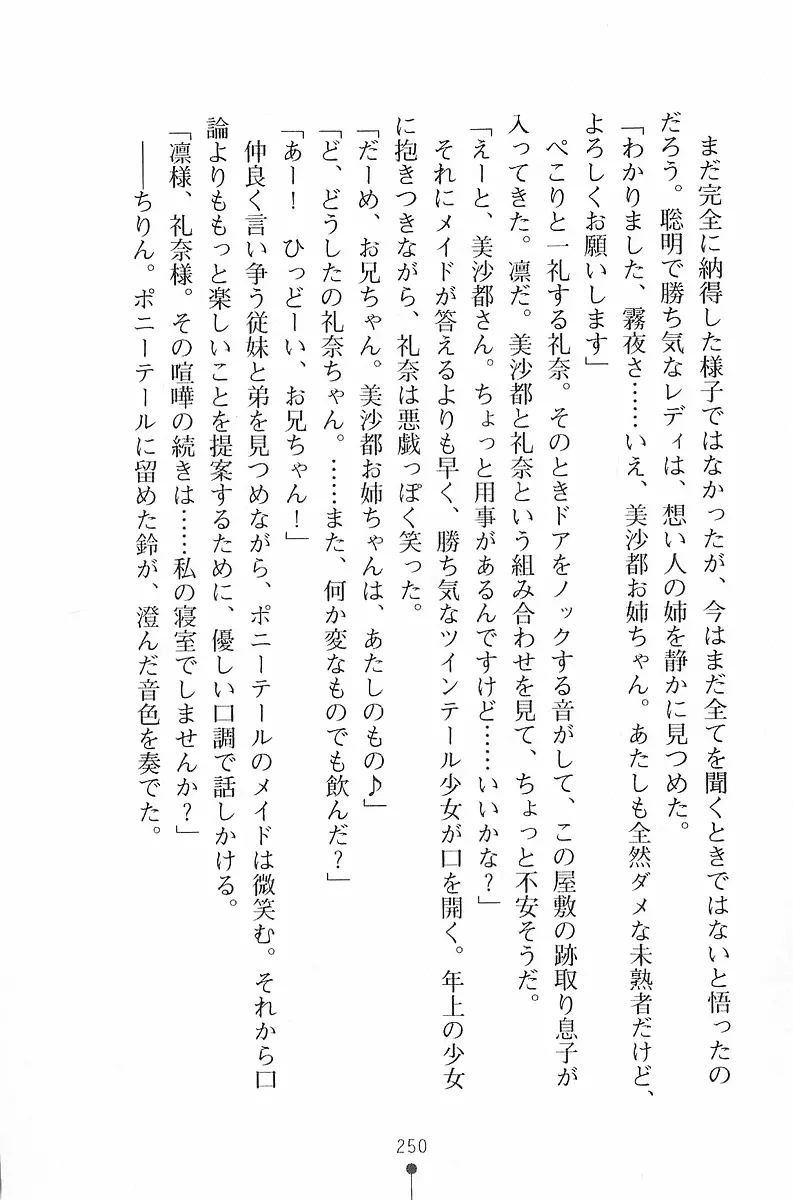 まだ完全に納得した様子ではなかったが、今はまだ全てを聞くときではないと悟ったの
だろう。聡明で勝ち気なレディは、想い人の姉を静かに見つめた。
「わかりました、霧夜さ……いえ、美沙都お姉ちゃん。あたしも全然ダメな未熟者だけど、
よろしくお願いします」
　ぺこりと一礼する礼奈。そのときドアをノックする音がして、この屋敷の跡取り息子が
入ってきた。凛だ。美沙都と礼奈という組み合わせを見て、ちょっと不安そうだ。
「えーと、美沙都さん。ちょっと用事があるんですけど……いいかな？」
　それにメイドが答えるよりも早く、勝ち気なツインテール少女が口を開く。年上の少女
に抱きつきながら、礼奈は悪戯っぽく笑った。
「だーめ、お兄ちゃん。美沙都お姉ちゃんは、あたしのもの♪」
「ど、どうしたの礼奈ちゃん。……また、何か変なものでも飲んだ？」
「あー！　ひっどーい、お兄ちゃん！」
　仲良く言い争う従妹と弟を見つめながら、ポニーテールのメイドは微笑む。それから口
論よりももっと楽しいことを提案するために、優しい口調で話しかける。
「凛様、礼奈様。その喧嘩の続きは……私の寝室でしませんか？」
　――ちりん。ポニーテールに留めた鈴が、澄んだ音色を奏でた。
250